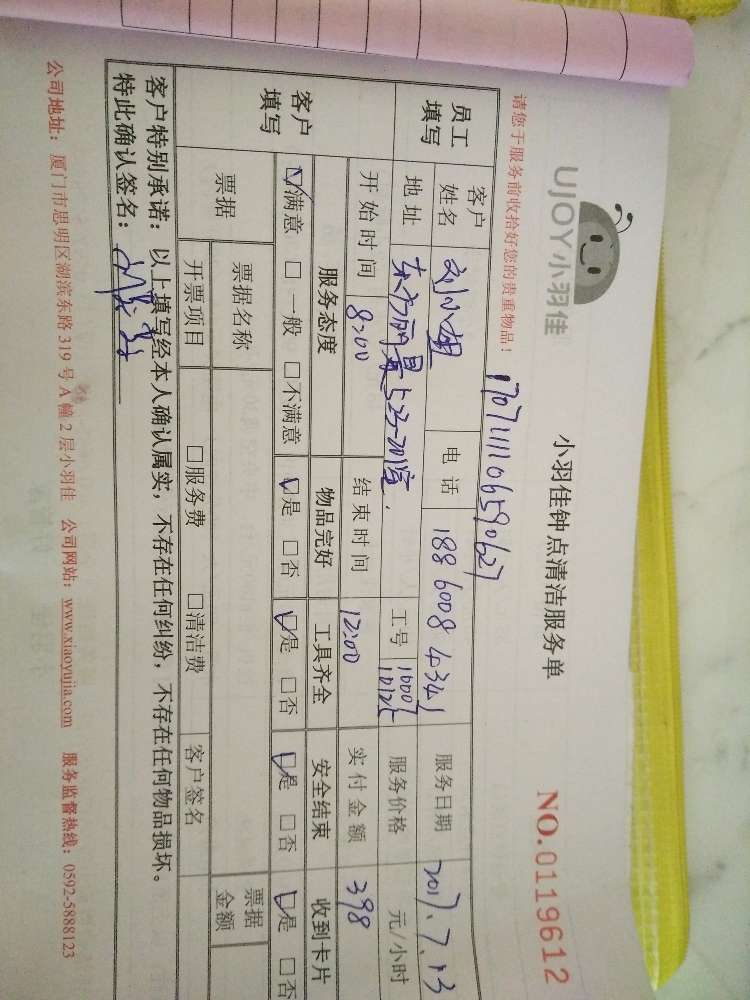 UJOY小羽佳
小羽佳钟点清洁服务单
NO.0119612
请您于服务前收拾好您的贵重物品!
员工填写
客户姓名 刘小姐 电话 188 6008 4341 服务日期 2017.7.13
地址 东方丽景523-201室. 工号 10007 服务价格 元/小时
开始时间 8:00 结束时间 12:00 实付金额 398
客户填写
服务态度 物品完好 工具齐全 安全结束 收到卡片
☑满意 □一般 □不满意 ☑是 □否 ☑是 □否 ☑是 □否 ☑是 □否
票据 票据名称 票据金额
开票项目 □服务费 □清洁费 客户签名
客户特别承诺:以上填写经本人确认属实,不存在任何纠纷,不存在任何物品损坏。
特此确认签名:
公司地址:厦门市思明区湖滨东路 319 号 A 幢 2 层小羽佳 公司网站:www.xiaoyujia.com 服务监督热线:0592-5888123